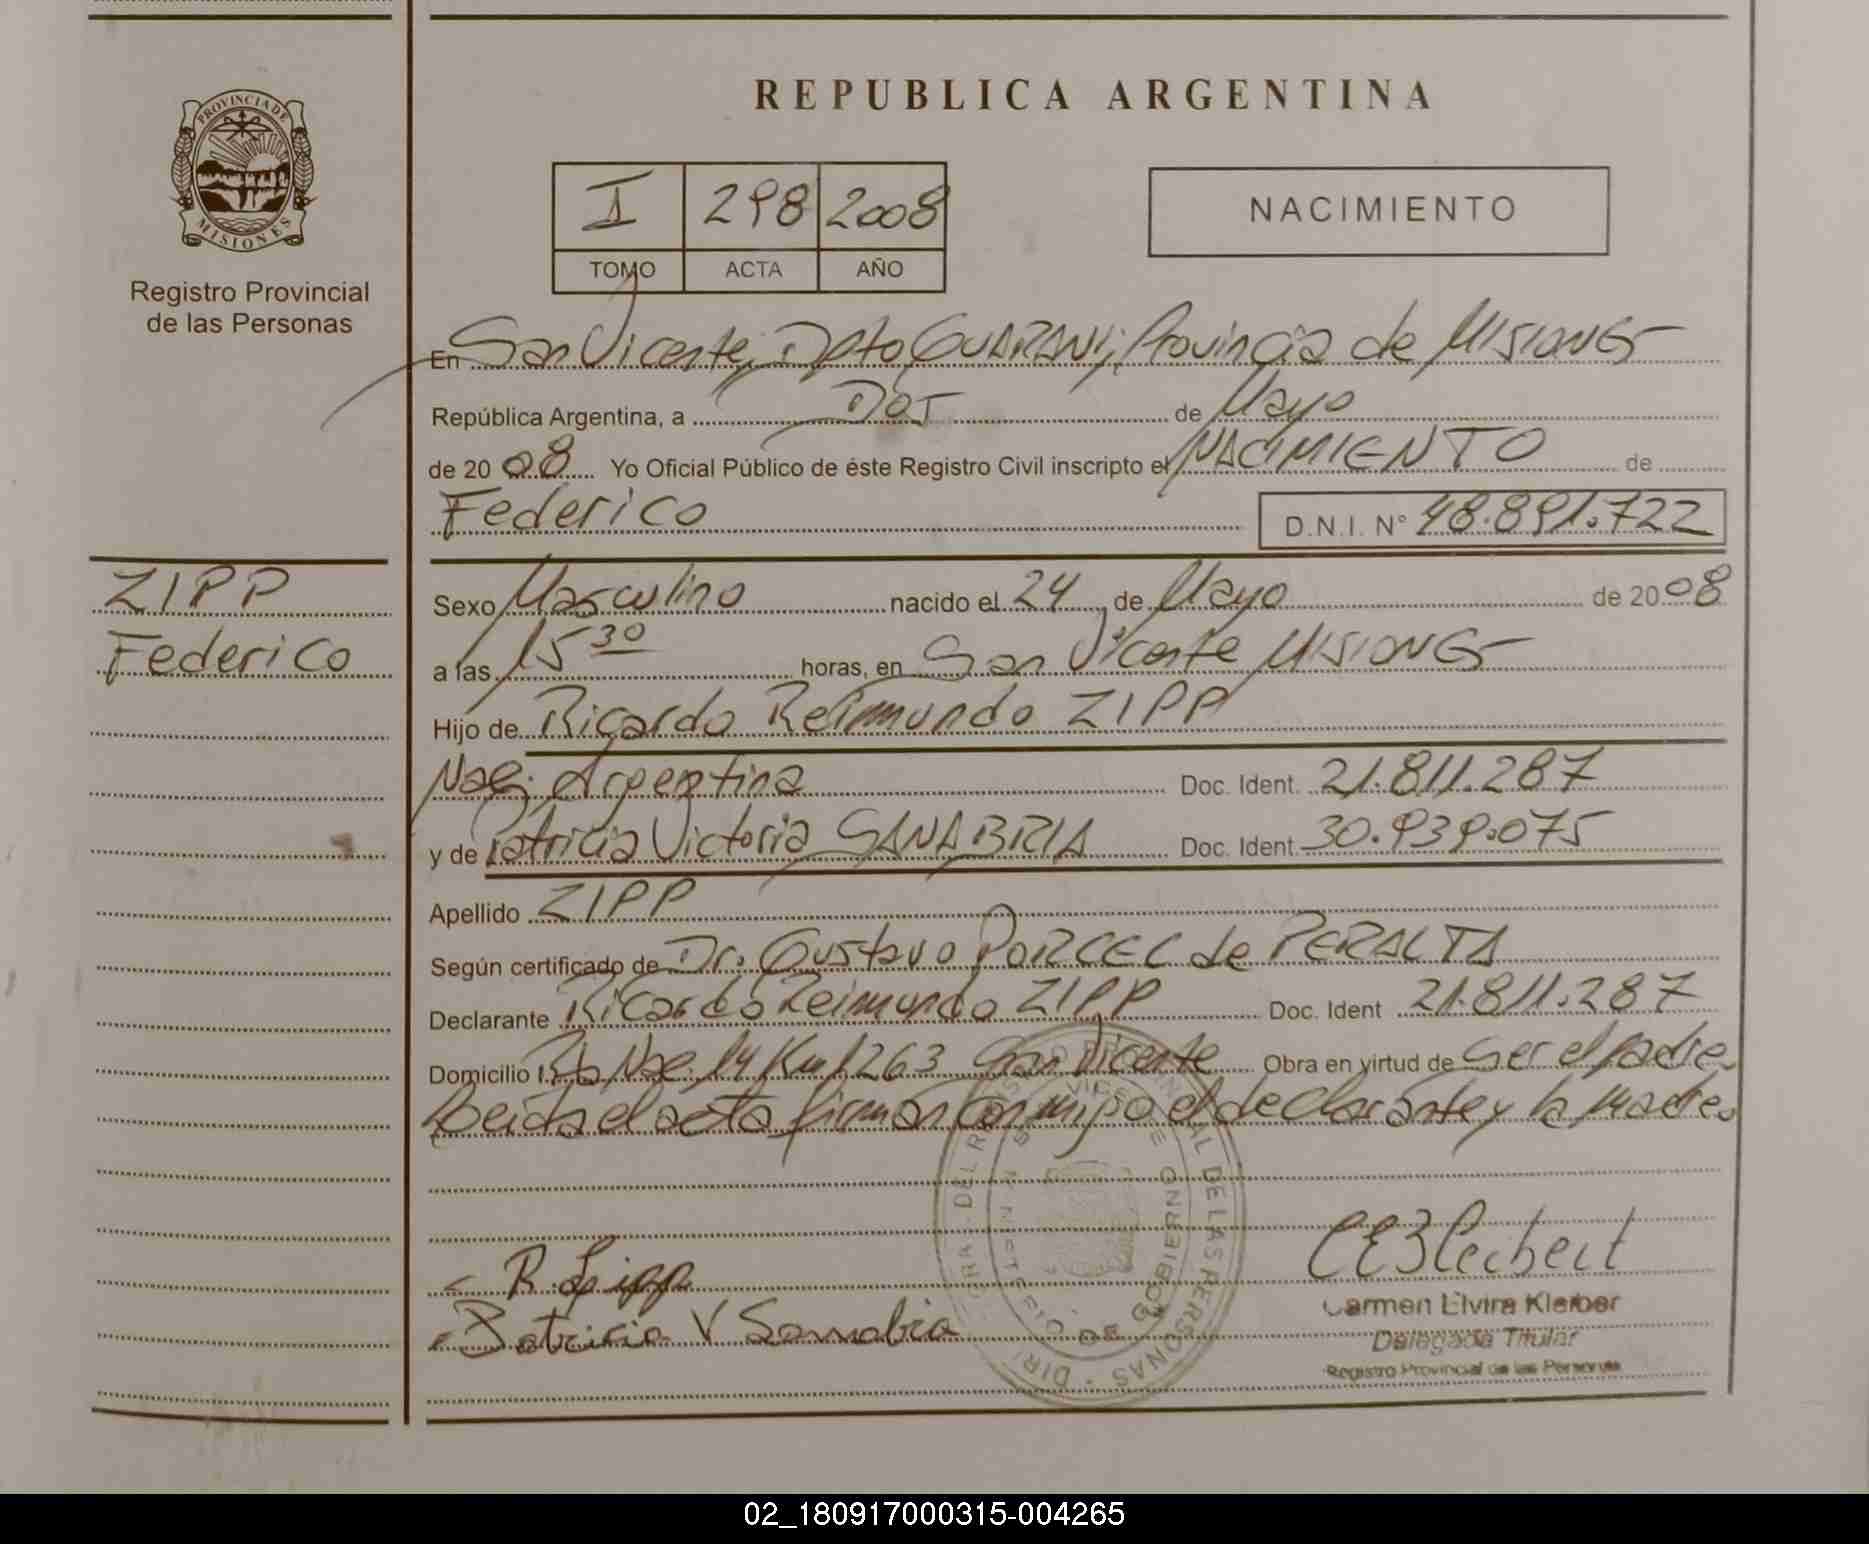 PROVINCIA DE
MISIONES
Registro Provincial
de las Personas
REPUBLICA ARGENTINA
I 298 2008
TOMO ACTA AÑO
NACIMIENTO
En San Vicente, Dpto GUARANI, Provincia de MISIONES
República Argentina, a DOS de Mayo
de 2008 Yo Oficial Público de éste Registro Civil inscripto el NACIMIENTO de
Federico D.N.I. N° 48.891.722
ZIPP
Federico
Sexo Masculino nacido el 24 de Mayo de 2008
a las 15 30 horas, en San Vicente MISIONES
Hijo de Ricardo Reimundo ZIPP
Nac. Argentina Doc. Ident. 21.811.287
y de Patricia Victoria SANABRIA Doc. Ident. 30.939.075
Apellido ZIPP
Según certificado de Dr. Gustavo PORCEL de PERALTA
Declarante Ricardo Reimundo ZIPP Doc. Ident 21.811.287
Domicilio Rta Nac. 14 Km 1263 San Vicente Obra en virtud de ser el padre
Leida el acta firman conmigo el declarante y la madre
R. Zipp
Patricia V Sanabria
Carmen Elvira Kleiber
Delegada Titular
Registro Provincial de las Personas
02_180917000315-004265